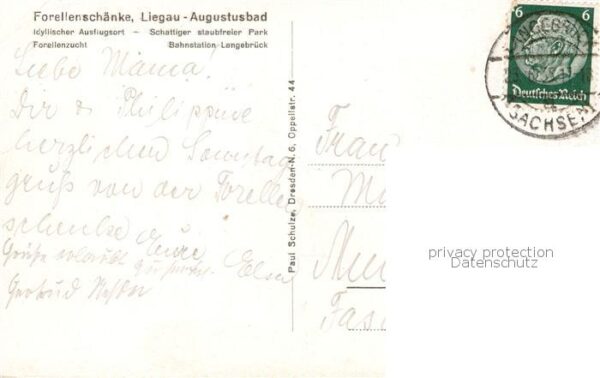 Forellenschänke, Liegau-Augustusbad
Idyllischer Ausflugsort - Schattiger staubfreier Park
Forellenzucht Bahnstation Langebrück
Liebe Mama!
Dir & Philippine
herzlichen Sonntags
gruß von der Forellen
schenke Eure
Grüße erlaubt Elsa
Gertrud
Paul Schulze, Dresden-N. 6, Oppellstr. 44
Frau
6 6
Deutsches Reich
LANGEBRÜCK
SACHSEN
privacy protection
Datenschutz